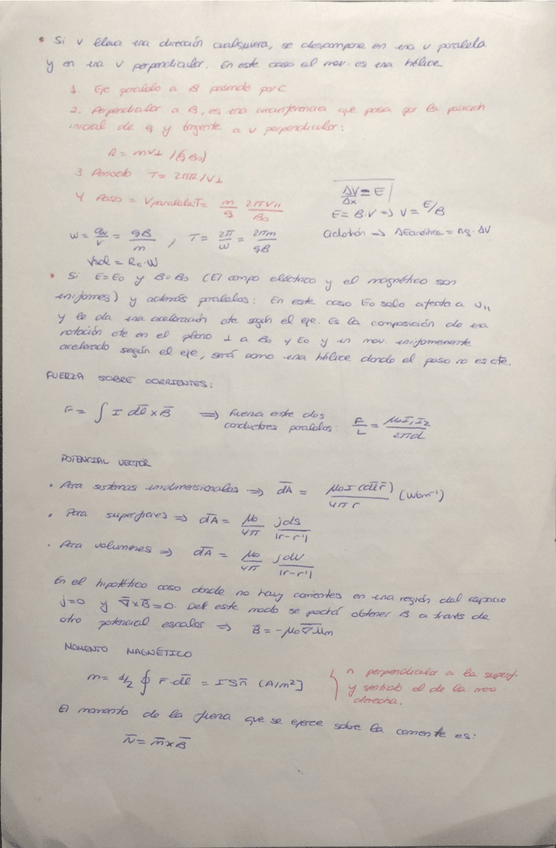 • Si v lleva una dirección cualquiera, se descompone en una v paralela
y en una v perpendicular. En este caso el mov. es una hélice
1. Eje paralelo a B pasando por C
2. Perpendicular a B, es una circunferencia que pasa por la posición
inicial de q y tangente a v perpendicular:
R = mv⊥ / (q B₀)
3 Periodo T = 2πR/v⊥
4 Paso = Vparalela·T = m/q 2πV∥/B₀
ΔV/Δx = E
E = B·V ⇒ V = E/B
ω = qₓ/r = qB/m , T = 2π/ω = 2πm/qB
Ciclotrón ⇒ ΔEcinética = nq·ΔV
• Si E = E₀ y B = B₀ (El campo eléctrico y el magnético son
uniformes) y además paralelos: En este caso E₀ solo afecta a v∥
y le da una aceleración cte según el eje. Es la composición de una
rotación cte en el plano ⊥ a B₀ y E₀ y un mov. uniformemente
acelerado según el eje, será como una hélice donde el paso no es cte.
FUERZA SOBRE CORRIENTES:
F = ∫ I dl × B ⇒ Fuerza entre dos
conductores paralelos: F/L = μ₀I₁I₂/2πd
POTENCIAL VECTOR
• Para sistemas unidimensionales ⇒ dA = μ₀ I (dl r)/4π r (Wb m⁻¹)
• Para superficies ⇒ dA = μ₀/4π jds/|r-r'|
• Para volúmenes ⇒ dA = μ₀/4π jdV/|r-r'|
En el hipotético caso donde no hay corrientes en una región del espacio
j=0 y ∇×B=0. Del este modo se podrá obtener B a través de
otro potencial escalar ⇒ B = -μ₀∇Um
MOMENTO MAGNÉTICO
m = 1/2 ∮ r·dl = I S n [A/m²]
n perpendicular a la superf.
y sentido el de la mano
derecha.
El momento de la fuerza que se ejerce sobre la corriente es:
N = m × B